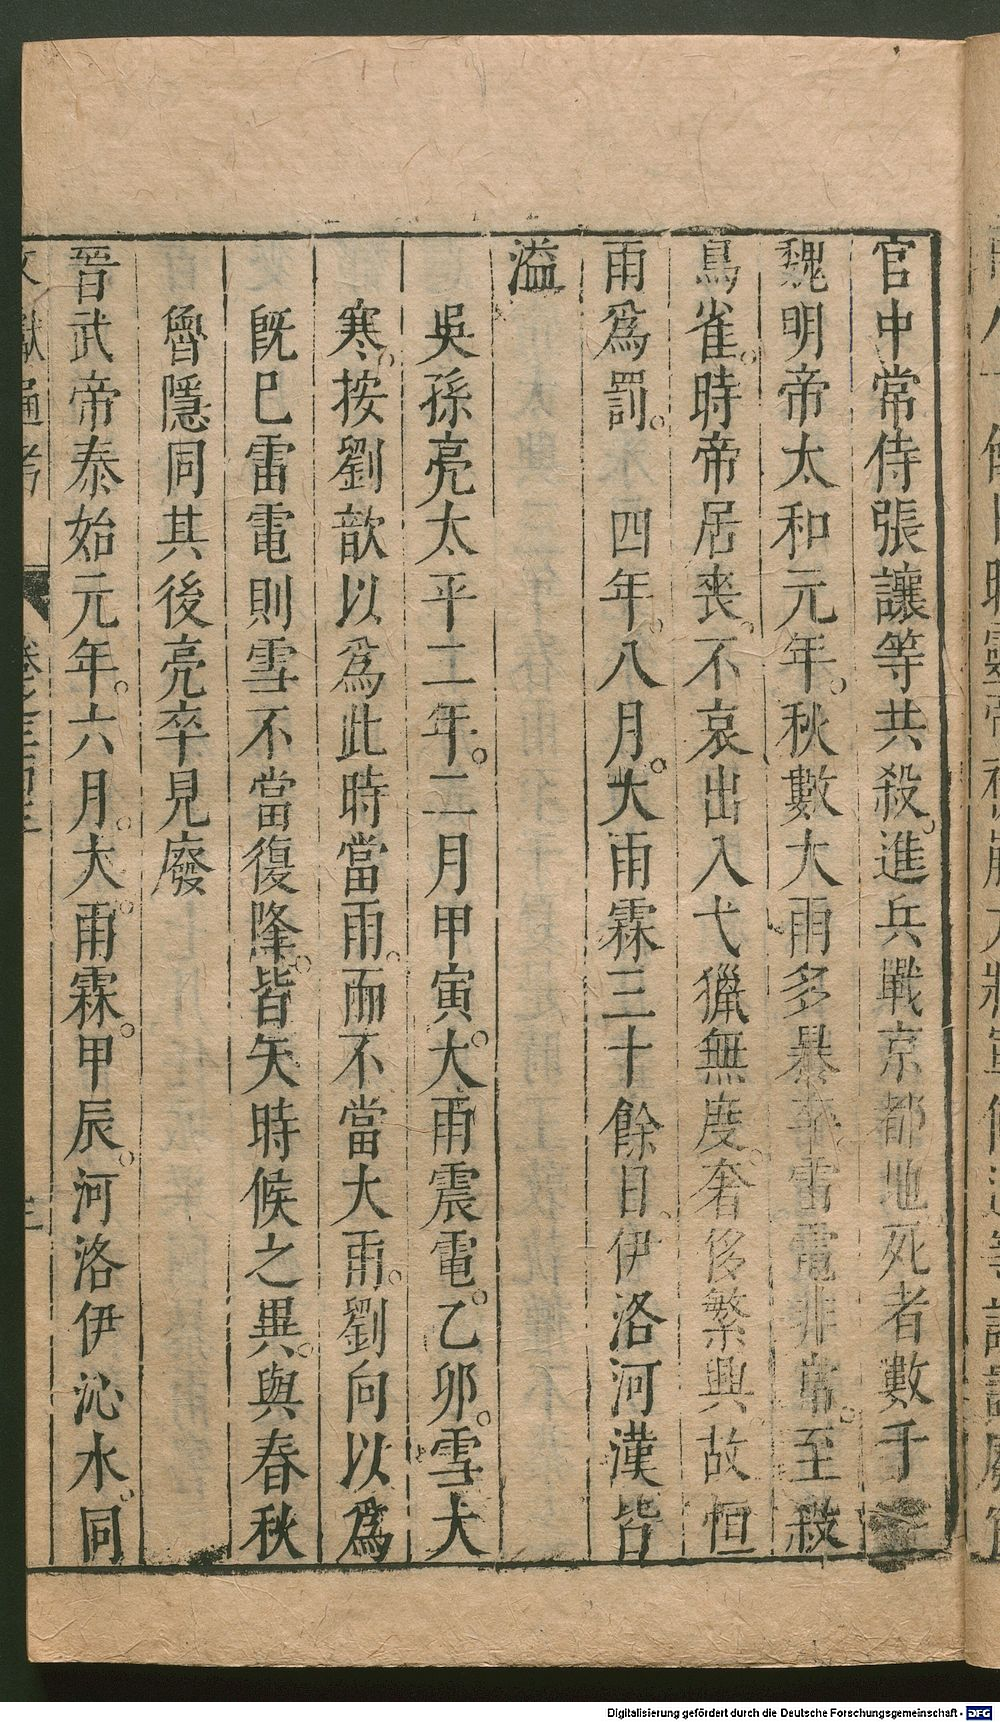 官中常侍張讓等共殺進兵戰京都地死者數千
魏明帝太和元年秋數大雨多暴卒雷電非常至殺
鳥雀時帝居喪不哀出入弋獵無度奢侈繁興故恒
雨爲罰四年八月大雨霖三十餘日伊洛河漢皆
溢
吳孫亮太平二年二月甲寅大雨震電乙卯雪大
寒按劉歆以爲此時當雨而不當大雨劉向以爲
旣巳雷電則雪不當復降皆失時候之異與春秋
魯隱同其後亮卒見廢
晉武帝泰始元年六月大雨霖甲辰河洛伊沁水同
文獻通考
Digitalisierung gefördert durch die Deutsche Forschungsgemeinschaft - DFG